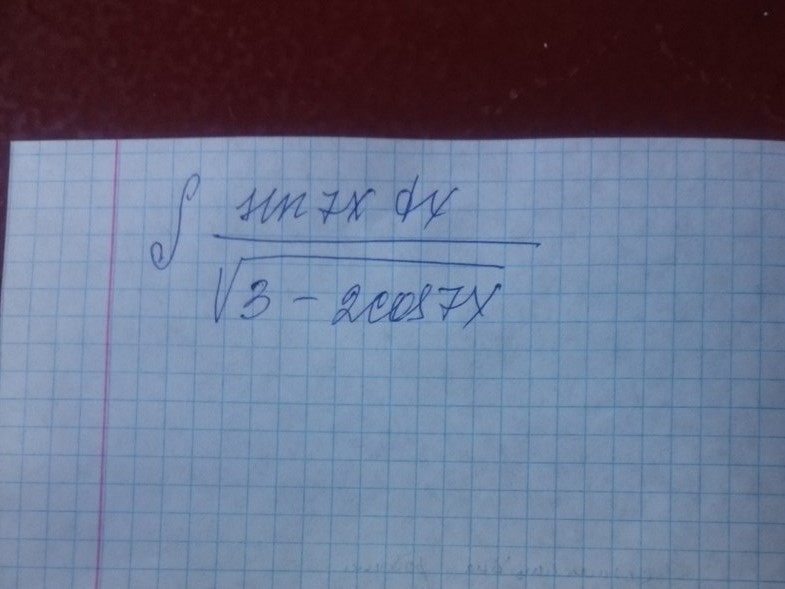 ∫ sin 7x dx
√3 - 2cos7x